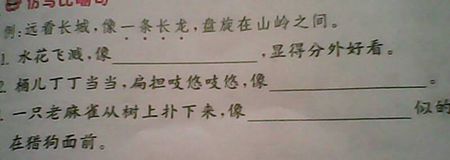 仿写比喻句
例:远看长城,像一条长龙,盘旋在山岭之间。
1. 水花飞溅,像____________,显得分外好看。
2. 桶儿丁丁当当,扁担吱悠吱悠,像____________。
一只老麻雀从树上扑下来,像____________似的
在猎狗面前。